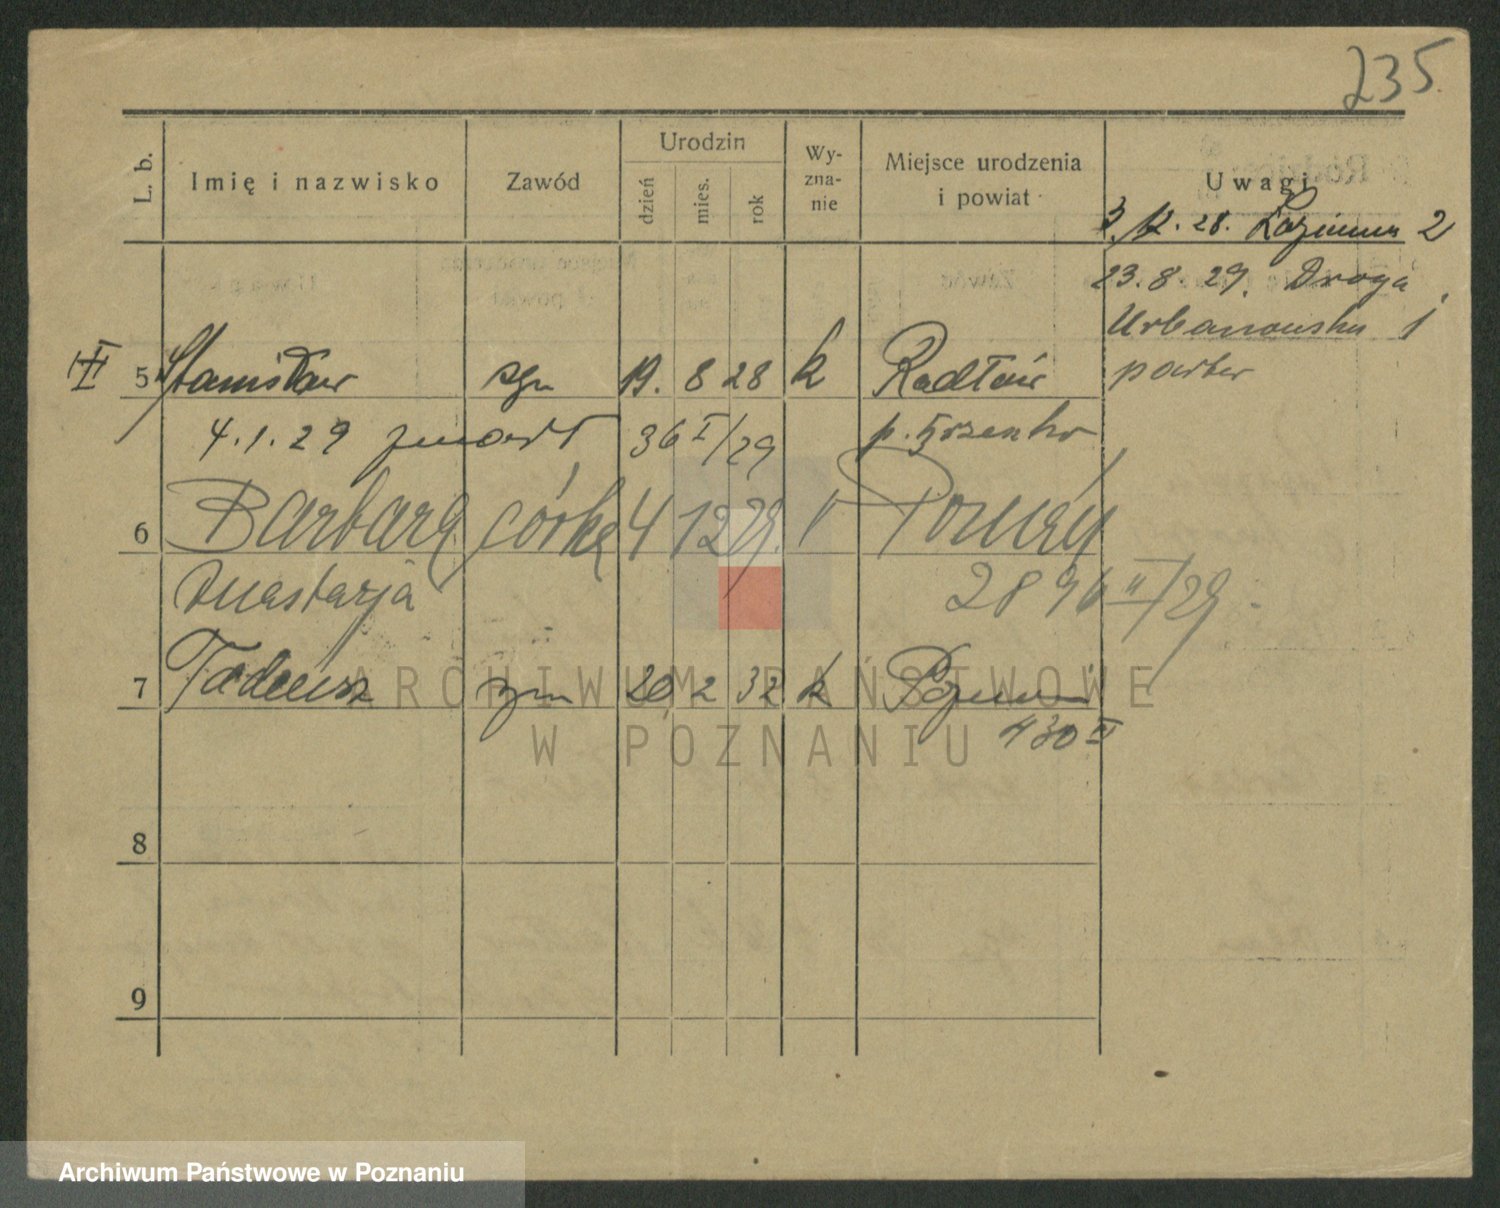 235.
L. b.
Imię i nazwisko
Zawód
Urodzin
dzień
mies.
rok
Wy-
zna-
nie
Miejsce urodzenia
i powiat
Uwagi
3. 12. 28. 2
23. 8 29. Droga
Urbanowska 1
parter
5 Stanisław syn 19. 8 28 k Radłów
4. 1. 29 zmarł 36 I/29 p.
6 Barbara córka 4 12 29. Poznań
Anastazja 2896 II/29
7 Tadeusz syn 20 2 32 k Poznań
430 II
8
9
ARCHIWUM PAŃSTWOWE
W POZNANIU
Archiwum Państwowe w Poznaniu